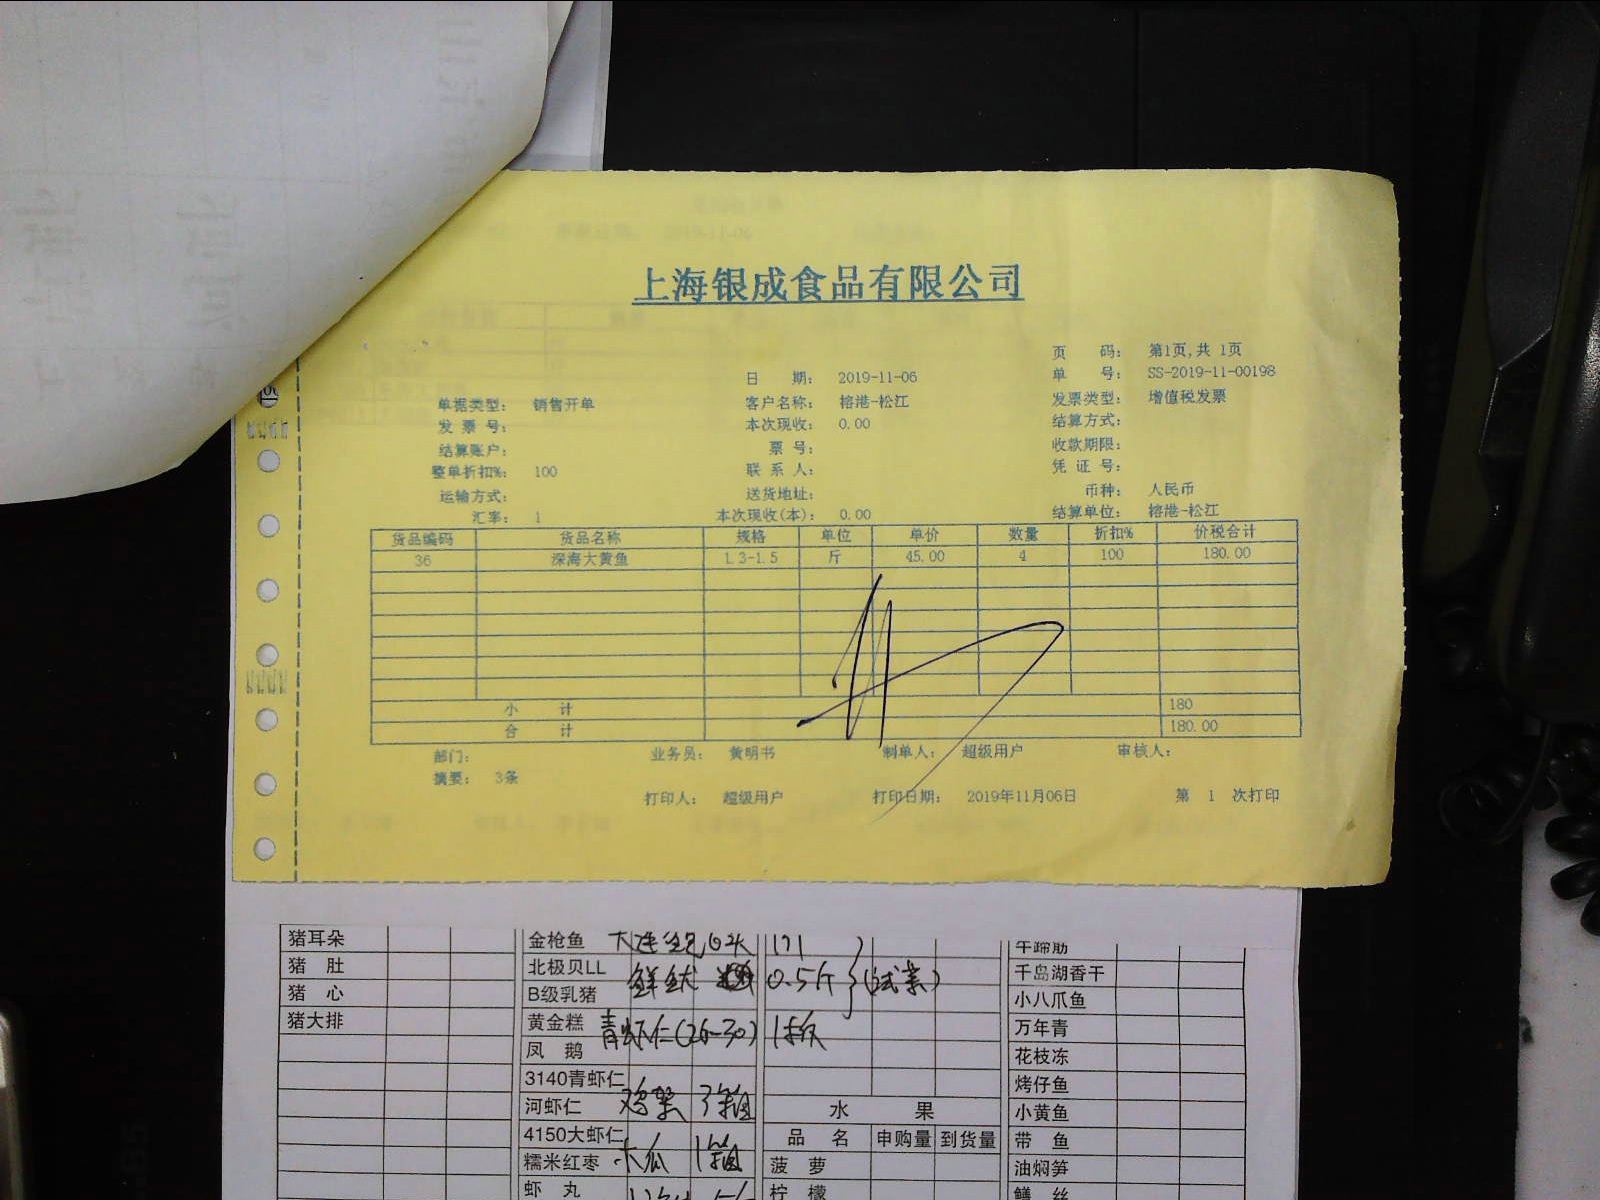 上海银成食品有限公司
页 码： 第1页,共 1页
日 期： 2019-11-06 单 号： SS-2019-11-00198
单据类型： 销售开单 客户名称： 榕港-松江 发票类型： 增值税发票
发 票 号： 本次现收： 0.00 结算方式：
结算账户： 票 号： 收款期限：
整单折扣%： 100 联 系 人： 凭 证 号：
运输方式： 送货地址： 币种： 人民币
汇率： 1 本次现收(本)： 0.00 结算单位： 榕港-松江
货品编码 货品名称 规格 单位 单价 数量 折扣% 价税合计
36 深海大黄鱼 1.3-1.5 斤 45.00 4 100 180.00
小 计 180
合 计 180.00
部门： 业务员： 黄明书 制单人： 超级用户 审核人：
摘要： 3条
打印人： 超级用户 打印日期： 2019年11月06日 第 1 次打印
猪耳朵 金枪鱼 牛蹄筋
猪 肚 北极贝LL 0.5斤 (试菜) 千岛湖香干
猪 心 B级乳猪 小八爪鱼
猪大排 黄金糕 青虾仁(26-30) 1板 万年青
凤 鹅 花枝冻
3140青虾仁 烤仔鱼
河虾仁 3箱 水 果 小黄鱼
4150大虾仁 品 名 申购量 到货量 带 鱼
糯米红枣 木瓜 1箱 菠 萝 油焖笋
虾 丸 柠 檬 鳝 丝